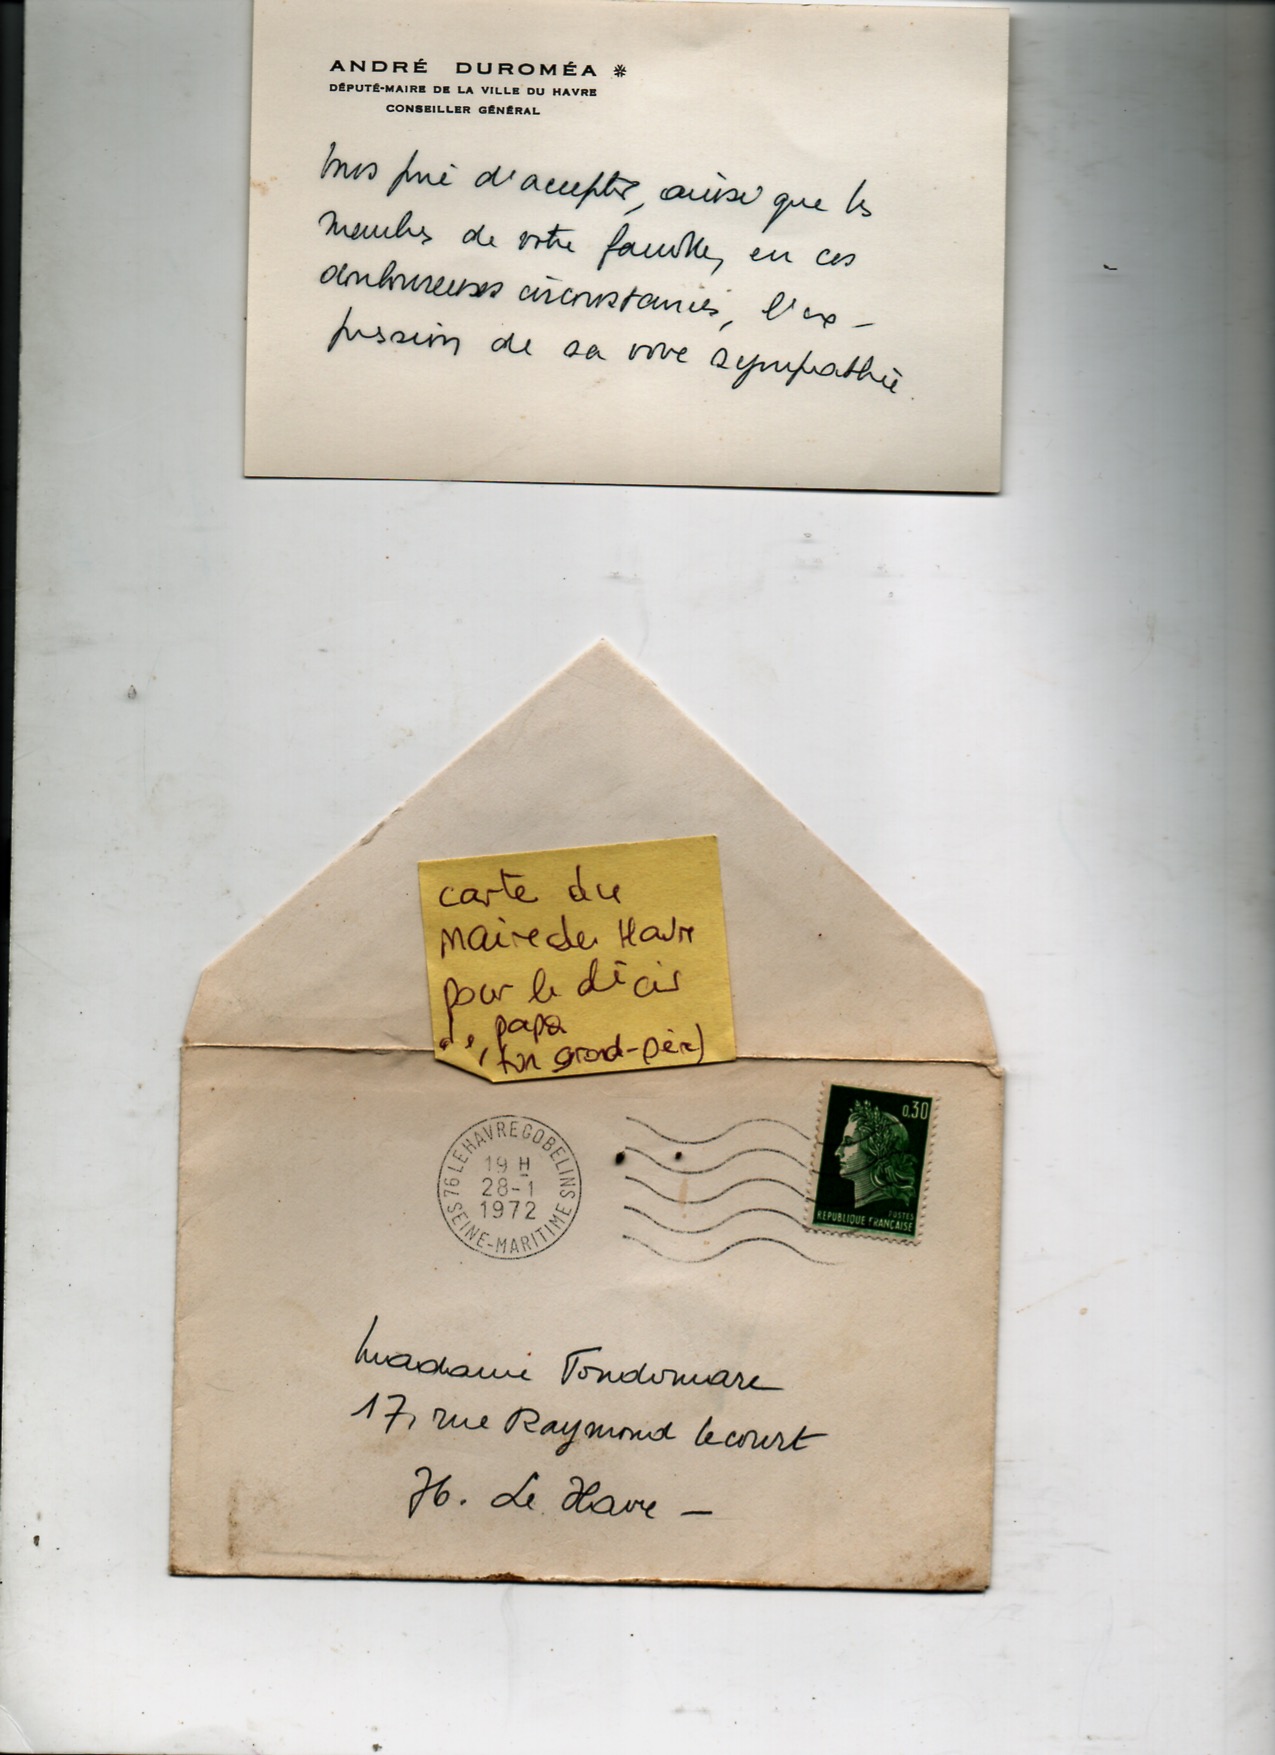 ANDRÉ DUROMÉA *
DÉPUTÉ-MAIRE DE LA VILLE DU HAVRE
CONSEILLER GÉNÉRAL
Vous prie d'accepter, ainsi que les
membres de votre famille, en ces
douloureuses circonstances, l'ex-
pression de sa vive sympathie.
carte du
Maire du Havre
pour le décès
papa
ton grand-père)
0,30
POSTES
REPUBLIQUE FRANCAISE
76 LE HAVRE GOBELINS
19 H
28-1
1972
SEINE-MARITIME
Madame Tondomare
17, rue Raymond Lecourt
76. Le Havre —